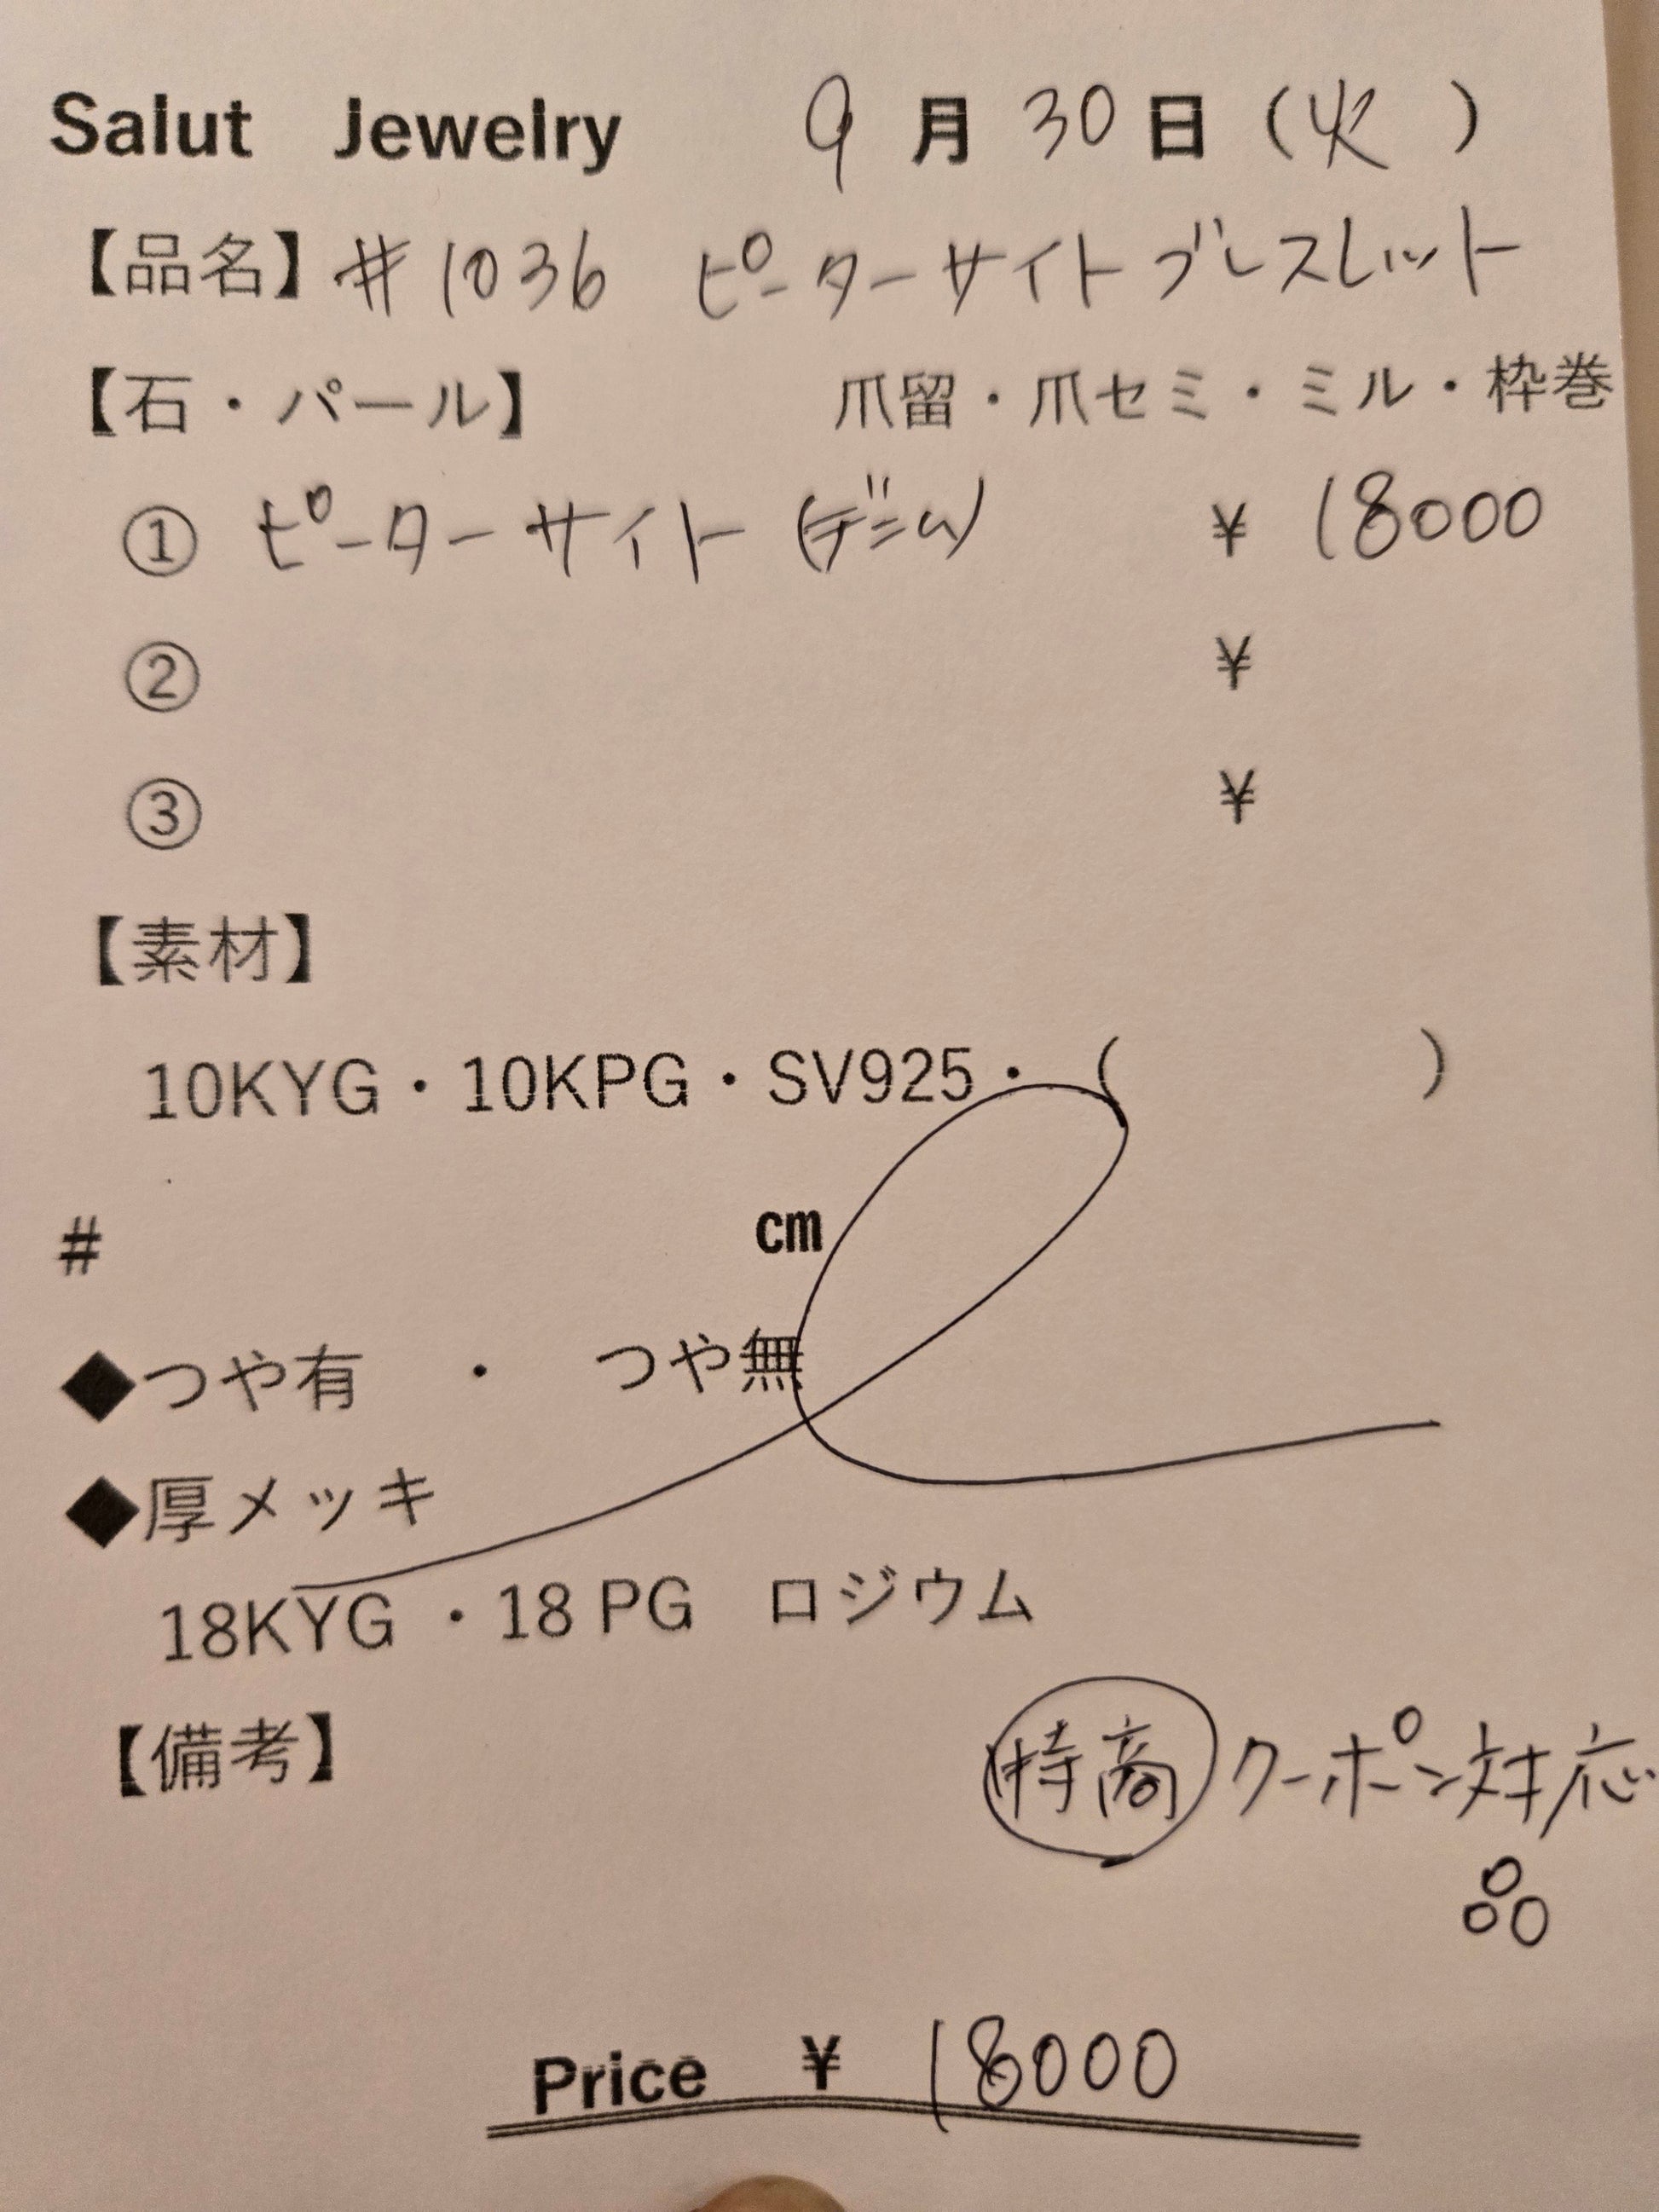 Salut Jewelry 9月30日(火)
【品名】#1036 ピーターサイトブレスレット
【石・パール】 爪留・爪セミ・ミル・枠巻
① ピーターサイト(デニム) ¥18000
② ¥
③ ¥
【素材】
10KYG・10KPG・SV925・( )
# cm
◆つや有 ・ つや無
◆厚メッキ
18KYG ・18 PG ロジウム
【備考】 特商 クーポン対応
Price ¥ 18000